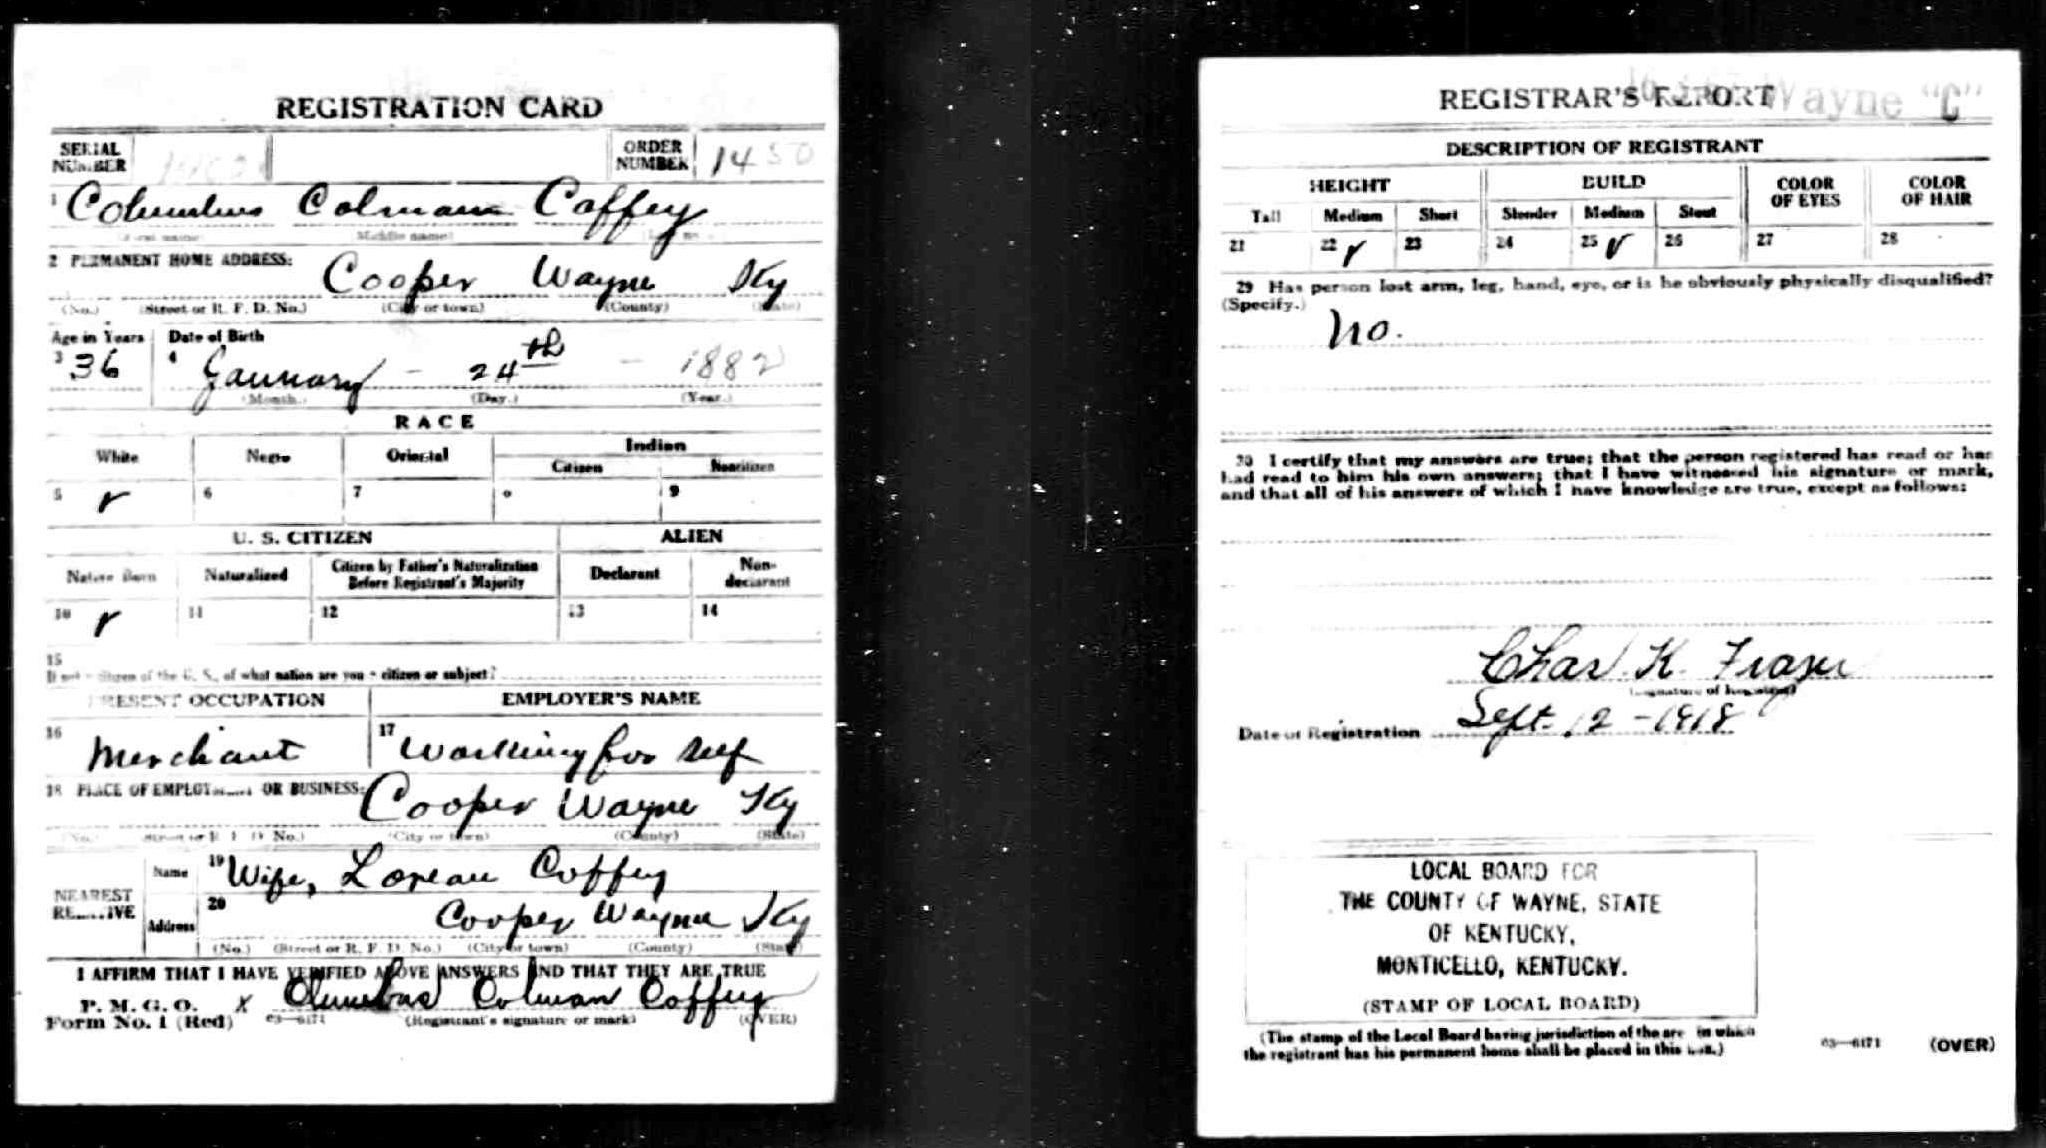 REGISTRATION CARD
SERIAL NUMBER
ORDER NUMBER 1450
1 Columbus Colman Coffey
(First name) (Middle name)
2 PERMANENT HOME ADDRESS:
Cooper Wayne Ky
(No.) (Street or R. F. D. No.) (City or town) (County) (State)
Age in Years Date of Birth
3 36 4 January - 24th - 1882
(Month.) (Day.) (Year.)
RACE
White Negro Oriental Indian
Citizen Noncitizen
5 ✓ 6 7 8 9
U. S. CITIZEN ALIEN
Native Born Naturalized Citizen by Father's Naturalization Before Registrant's Majority Declarant Non-declarant
10 ✓ 11 12 13 14
15
If not a citizen of the U. S., of what nation are you a citizen or subject?
PRESENT OCCUPATION EMPLOYER'S NAME
16 Merchant 17 Working for self
18 PLACE OF EMPLOYMENT OR BUSINESS:
Cooper Wayne Ky
(No.) (Street or R. F. D. No.) (City or town) (County) (State)
NEAREST RELATIVE
Name 19 Wife, Loreau Coffey
Address 20 Cooper Wayne Ky
(No.) (Street or R. F. D. No.) (City or town) (County) (State)
I AFFIRM THAT I HAVE VERIFIED ABOVE ANSWERS AND THAT THEY ARE TRUE
P. M. G. O.
Form No. 1 (Red) 03—6171 x Columbus Colman Coffey
(Registrant's signature or mark) (OVER)
REGISTRAR'S REPORT
Wayne "C"
DESCRIPTION OF REGISTRANT
HEIGHT BUILD COLOR OF EYES COLOR OF HAIR
Tall Medium Short Slender Medium Stout
21 22 ✓ 23 24 25 ✓ 26 27 28
29 Has person lost arm, leg, hand, eye, or is he obviously physically disqualified?
(Specify.)
No.
30 I certify that my answers are true; that the person registered has read or has
had read to him his own answers; that I have witnessed his signature or mark,
and that all of his answers of which I have knowledge are true, except as follows:
Chas K. Frazer
(Signature of Registrar)
Date of Registration Sept. 12 - 1918
LOCAL BOARD FOR
THE COUNTY OF WAYNE, STATE
OF KENTUCKY,
MONTICELLO, KENTUCKY.
(STAMP OF LOCAL BOARD)
(The stamp of the Local Board having jurisdiction of the area in which
the registrant has his permanent home shall be placed in this box.)
03—6171 (OVER)